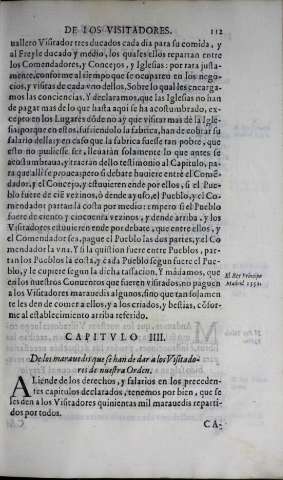 DE LOS VISITADORES. 112
uallero Visitador tres ducados cada dia para su comida, y
al Freyle ducado y medio, los quales ellos repartan entre
los Comendadores, y Concejos, y Iglesias: por rata justa-
mente, conforme al tiempo que se ocuparen en los nego-
cios, y visitas de cada vno dellos. Sobre lo qual les encarga-
mos las conciencias. Y declaramos, que las Iglesias no han
de pagar mas de lo que hasta aqui se ha acostumbrado, ex-
cepto en los Lugares dōde no ay que visitar mas de la Igle-
sia: porque en estos, sufriendolo la fabrica, han de cobrar su
salario della: y en caso que la fabrica fuesse tan pobre, que
esto no pudiesse ser, lleuarán solamente lo que antes se
acostumbraua, y traeran dello testimonio al Capitulo, pa-
ra que alli se prouea: pero si debate huuiere entre el Comē-
dador, y el Concejo, y estuuieren ende por ellos, si el Pue-
blo fuere de ciē vezinos, ò dende ayuso, el Pueblo, y el Co-
mendador partan la costa por medio: empero si el Pueblo
fuere de ciento y cincuenta vezinos, y dende arriba, y los
Visitadores estuuieren ende por debate, que entre ellos, y
el Comendador sea, pague el Pueblo las dos partes, y el Co
mendador la vna. Y si la quistion fuere entre Pueblos, par-
tan los Pueblos la costa, y cada Pueblo segun fuere el Pue-
blo, y le cupiere segun la dicha tassacion. Y mādamos, que
en los nuestros Conuentos que fueren visitados, no paguen
a los Visitadores marauedis algunos, sino que tan solamen
te les den de comer a ellos, y a los criados, y bestias, cōfor-
me al establecimiento arriba referido.
El Rey Principe
Madrid 1552.
CAPITVLO IIII.
De los marauedis que se han de dar a los Visitado-
res de nuestra Orden.
ALiende de los derechos, y salarios en los preceden-
tes capitulos declarados, tenemos por bien, que se
les den a los Visitadores quinientas mil marauedis reparti-
dos por todos.
CA-